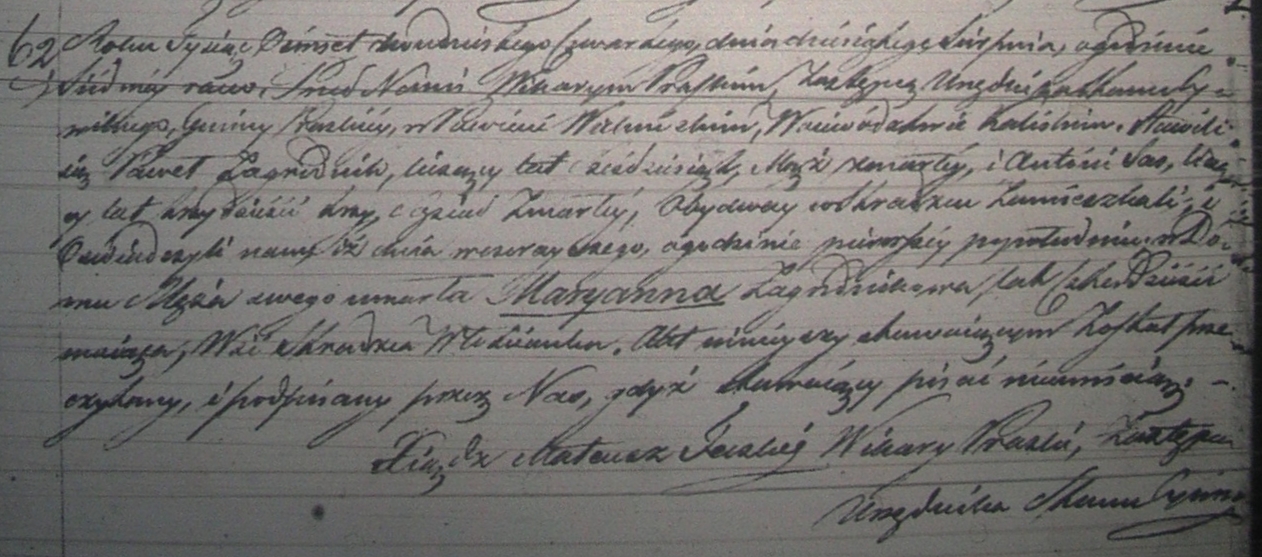 62 Roku Tysiąc Ośmset dwudziestego Czwartego, dnia dziesiątego Sierpnia, ogodzinie
Siódmej rano. Przed Nami Wikarym Praskim, Zastępcą Urzędnika stanu Cy=
wilnego, Gminy Praskiej, w Powiecie Wieluńskim, Woiewództwie Kaliskim. Stawili
się Paweł Zagrodnik, liczący lat sześćdziesiąt, Mąż zmarłey, i Antoni Sas, licząc
y lat trzydzieści trzy, zmarłey, Obydway wStradzcu Zamieszkali, i
Oświadczyli nam iż dnia wczorayszego, ogodzinie pierwszey popołudniu, w Do=
mu Męża swego umarła Maryanna Zagrodnikowa lat Czterdzieści
maiąca, Włościanka. Akt ninieyszy stawaiącym Został prze=
czytany, i podpisany przez Nas, gdyż stawaiący pisać nieumieią. –
Xiądz Mateusz Wikary Praski, Zastępca
Urzędnika Stanu Cywiln